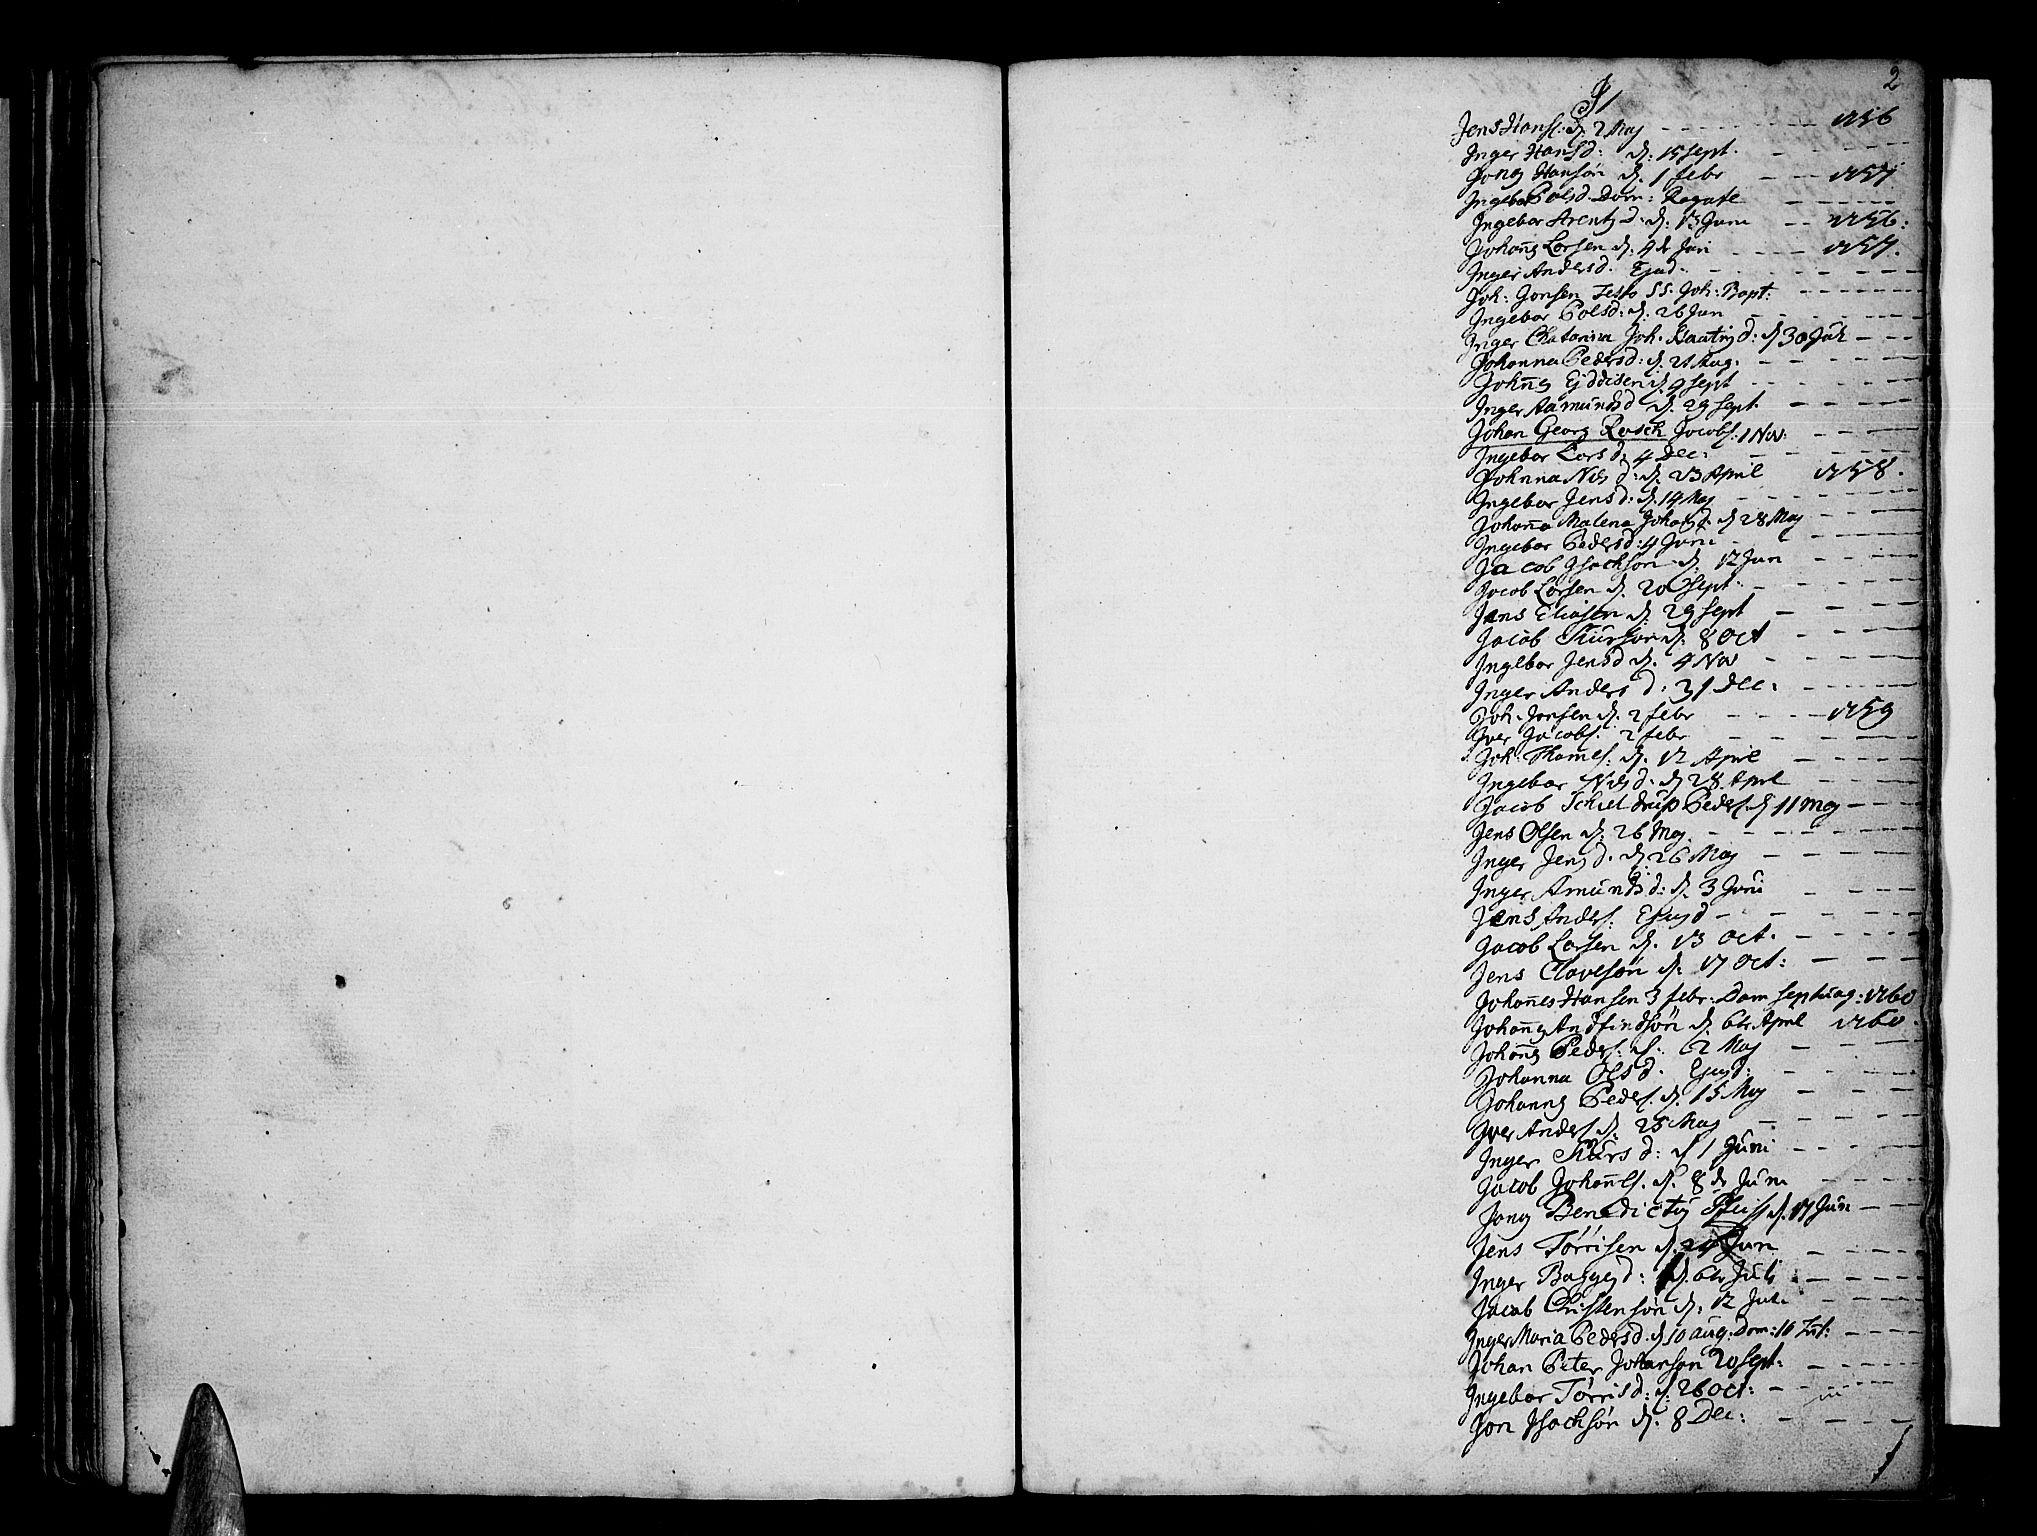 2
J
Jens Hans: d. 2 Maj - - - - - 1756
Inger Hansd: d: 15 Sept. - - - -
Jong Hansøn d. 1 febr - - 1757
Ingebor Polsd. Dom: Rogate - - - - -
Ingebor Arentz d: d. 13 Juni - - 1756:
Johang Larsen d. 4 de Jan - - - - 1757.
Inger Andersd. Ejud. - - - - -
Joh: Jonsen Festo SS. Joh: Bapt: - - - - -
Ingebor Polsd: d. 26 Jun - - - - -
Inger Chatarina Joh. d: d 30 Juli - - -
Johanna Pedersd: d. 21 Aug. - - - - -
Johang Ejddisen d. 9 Sept - - - - -
Inger Aamundsd d. 29 Sept. - - - - -
Johan Georg Rosch Jacobs: 1 Nov: - - - -
Ingebor Larsd: 4 Dec: - - - - -
Johnna Nils d: d. 23 April 1758.
Ingebor Jensd: d. 14 Maj - - - - -
Johana Malena Johansd. d 28 Maj - - - -
Ingebor Pedersd: 4 Juni - - - - -
Jacob Isachsøn d. 12 Jun - - - -
Jacob Larsen d. 20 Sept. - - - - -
Jens Eliasen d. 29 Sept - - - -
Jacob Siursøn d. 8 Oct - - - -
Ingebor Jensd d. 4 Nov - - - - -
Inger Anders d: 31 Dec: - - - -
Joh. Jonsen d. 2 febr - - - - 1759
Iver Jacobs. 2 febr - - - - -
Joh. Thomes: d. 12 April - - - -
Ingebor Nilsd: d 28 April - - - -
Jacob Schieldrup Peders. d 11 Maj - - -
Jens Olsen d. 26 Maj. - - - - -
Inger Jensd. d. 26 Maj - - - -
Inger Amundsd: d. 3 Juni - - - -
Jens Anders. Ejusd - - - - -
Jacob Larsen d. 13 Oct. - - - -
Jens Clavesøn d. 17 Oct: - - - -
Johanes Hansen 3 febr: Dom Septuag: 1760
Johang Andfindsøn d. 6te April 1760
Johang Peders: d. 2 Maj - - -
Johanna Olsd. Ejusd: - - - -
Johanng Peders. d. 15 Maj - - - -
Iver Anders d. 25 Maj - - - -
Inger Siursd: d 1 Juni - - - -
Jacob Johanes. d. 8 de Juni - - - -
Jong Benedictus d. 17 Jun - - -
Jens Tørrisen d. 24 Jun - - - -
Inger Baggesd: d. 6te Juli - - - -
Jacob Christensøn d. 12 Juli - - - -
Inger Maria Pedersd. d 10 Aug: Dom: 10 - - - -
Johan Peter Johansøn 20 Sept: - - - -
Ingebor Tørrisd: d. 26 Oct: - - - -
Jon Isachsøn d. 8 Dec: - - - -